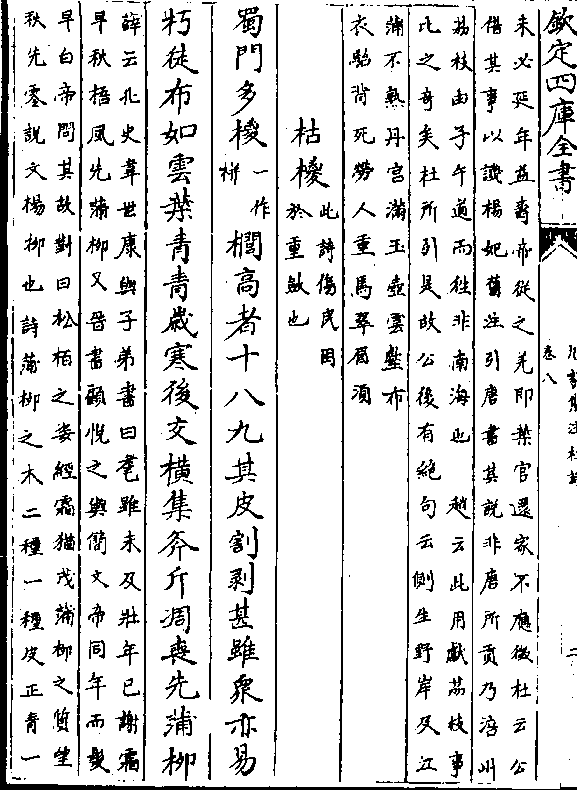 欽定四庫全書
卷八
未必延年益壽帝從之羌即棄官還家不應徵杜云公
借其事以譏楊妃舊注引唐書其説非唐所貢乃涪州
荔枝由子午道而往非南海也 趙云此用獻荔枝事
比之奇矣杜所引是故公後有絶句云側生野岸及江
蒲不熟丹宮滿玉壺雲壑布
衣鮐背死勞人重馬翠眉須
枯椶 此詩傷民困於重歛也
蜀門多椶一作栟櫚高者十八九其皮割剥甚雖衆亦易
朽徒布如雲葉青青歲寒後交橫集斧斤凋喪先蒲柳
薛云北史韋世康與子弟書曰耄雖未及壯年已謝霜
早秋梧風先蒲柳又晋書顧悦之與簡文帝同年而髮
早白帝問其故對曰松栢之姿經霜猶茂蒲柳之質望
秋先零説文楊柳也詩蒲柳之木二種一種皮正青一